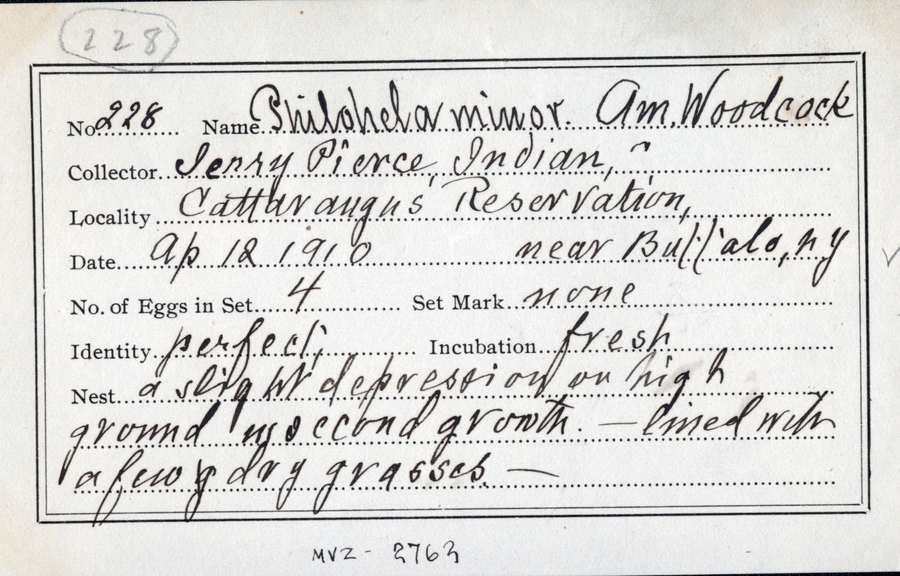 228
No. 228 Name. Philohela minor. Am. Woodcock
Collector. Jerry Pierce, Indian,
Locality. Cattaraugus Reservation,
Date. Ap 12 1910 near Buffalo, N Y
No. of Eggs in Set. 4 Set Mark. none
Identity. perfect; Incubation. fresh
Nest. a slight depression on high
ground in second growth. — lined with
a few dry grasses. —
MVZ - 2763